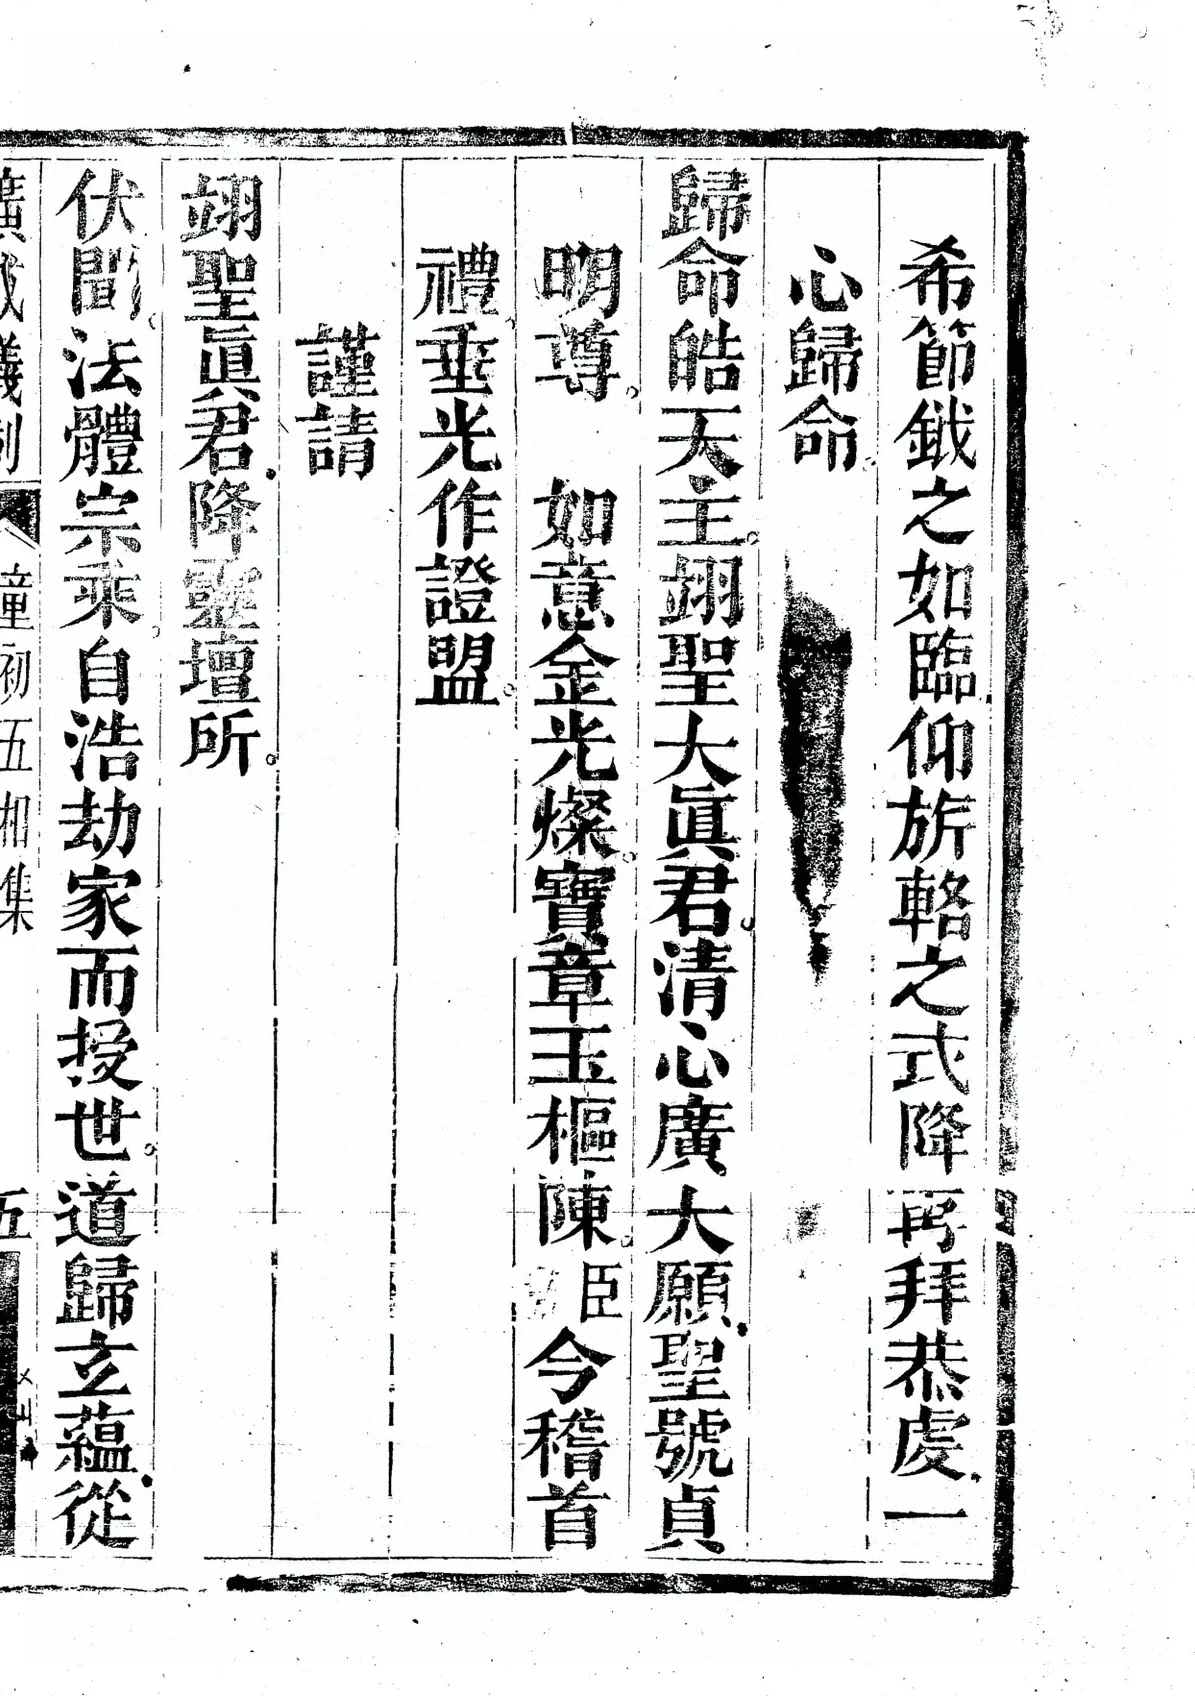 希節鉞之如臨仰旂輅之式降再拜恭虔一
心歸命
歸命皓天主翊聖大眞君清心廣大願聖號貞
明尊 如意金光燦寶章玉樞陳臣 今稽首
禮垂光作證盟
謹請
翊聖眞君降靈壇所
伏聞法體宗乘自浩劫家而授世道歸立蘊從
廣成儀制 童初五相集 五